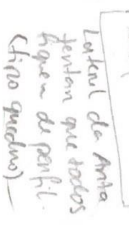 Lateral da Anta
tentar que todos
fiquem de perfil.
(tipo quadro)